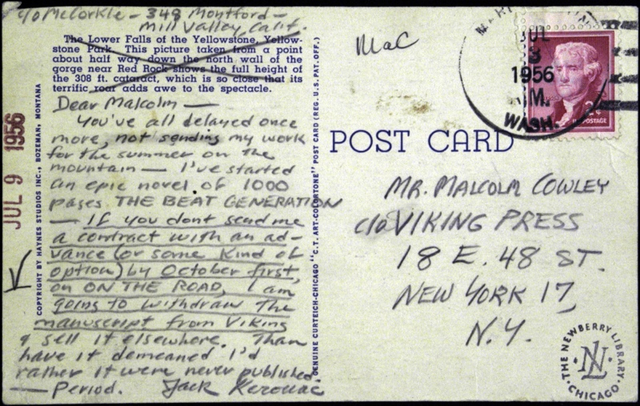 c/o McCorkle - 348 Montford -
Mill Valley, Calif.
The Lower Falls of the Yellowstone, Yellow-
stone Park. This picture taken from a point
about half way down the north wall of the
gorge near Red Rock shows the full height of
the 308 ft. cataract, which is so close that its
terrific roar adds awe to the spectacle.
Dear Malcolm —
You've all delayed once
more, not sending my work
for the summer on the
mountain — I've started
an epic novel of 1000
pages THE BEAT GENERATION
— If you dont send me
a contract with an ad-
vance (or some kind of
option) by October first,
on ON THE ROAD, I am
going to withdraw the
manuscript from Viking
& sell it elsewhere. Than
have it demeaned I'd
rather it were never published
— Period. Jack Kerouac
JUL 9 1956
COPYRIGHT BY HAYNES STUDIOS INC., BOZEMAN, MONTANA
GENUINE CURTEICH-CHICAGO "C.T. ART-COLORTONE" POST CARD (REG. U.S. PAT. OFF.)
MaC
JUL
3
1956
WASH.
POSTAGE
POST CARD
MR. MALCOLM COWLEY
c/o VIKING PRESS
18 E. 48 ST.
NEW YORK 17,
N.Y.
THE NEWBERRY LIBRARY
NL
CHICAGO